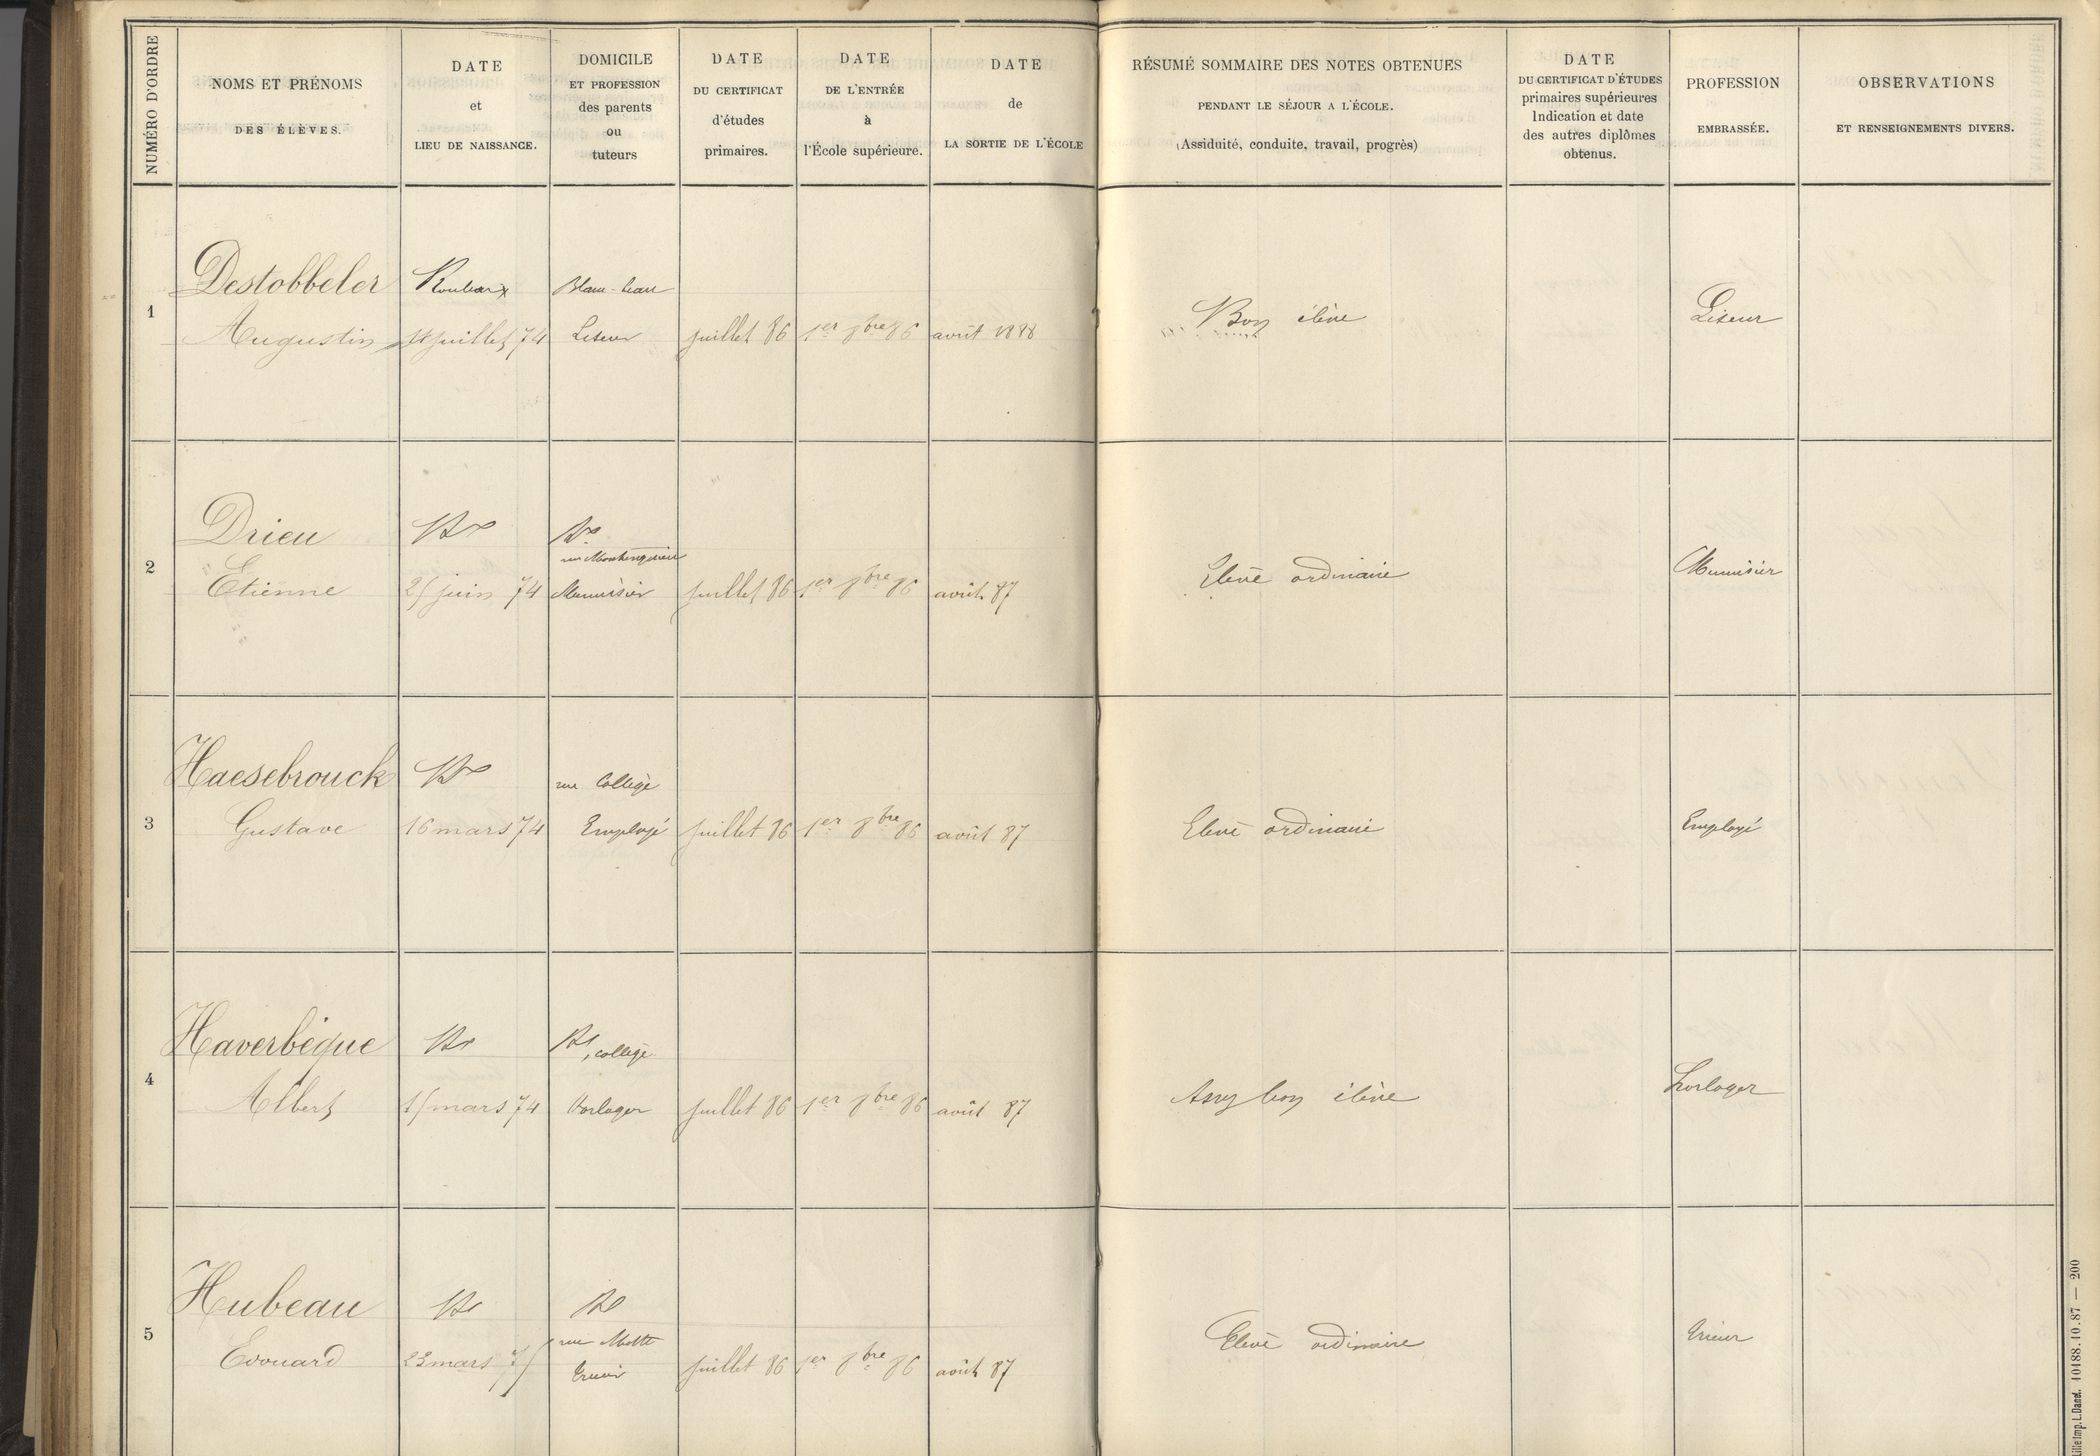 NUMÉRO D'ORDRE
NOMS ET PRÉNOMS
DES ÉLÈVES.
DATE
et
LIEU DE NAISSANCE.
DOMICILE
ET PROFESSION
des parents
ou
tuteurs
DATE
DU CERTIFICAT
d'études
primaires.
DATE
DE L'ENTRÉE
à
l'École supérieure.
DATE
de
LA SORTIE DE L'ÉCOLE
RÉSUMÉ SOMMAIRE DES NOTES OBTENUES
PENDANT LE SÉJOUR A L'ÉCOLE.
(Assiduité, conduite, travail, progrès)
DATE
DU CERTIFICAT D'ÉTUDES
primaires supérieures
Indication et date
des autres diplômes
obtenus.
PROFESSION
EMBRASSÉE.
OBSERVATIONS
ET RENSEIGNEMENTS DIVERS.
1
Destobbeler
Augustin
Roubaix
juillet 74
Blanc-seau
Liseur
juillet 86
1er 8bre 86
août 1888
Bon élève
Liseur
2
Drieu
Etienne
Rx
25 juin 74
Rx
Menuisier
juillet 86
1er 8bre 86
août 87
Elève ordinaire
Menuisier
3
Haesebrouck
Gustave
Rx
16 mars 74
rue Collège
Employé
juillet 86
1er 8bre 86
août 87
Elève ordinaire
Employé
4
Haverbèque
Albert
Rx
15 mars 74
Rx, collège
horloger
juillet 86
1er 8bre 86
août 87
Assez bon élève
horloger
5
Hubeau
Edouard
Rx
23 mars 75
Rx
rue Motte
trieur
juillet 86
1er 8bre 86
août 87
Elève ordinaire
trieur
Lille Imp. L. Danel. 10188.10.87 — 200